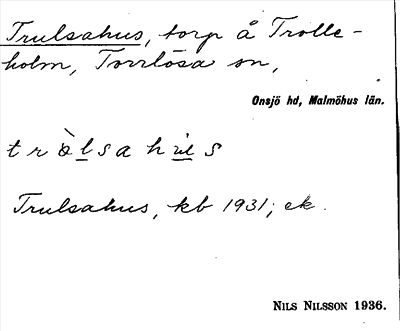 Trulsahus, torp å Trolle-
holm, Torrlösa sn,
Onsjö hd, Malmöhus län.
Trulsahus, kb 1931; ek.
NILS NILSSON 1936.